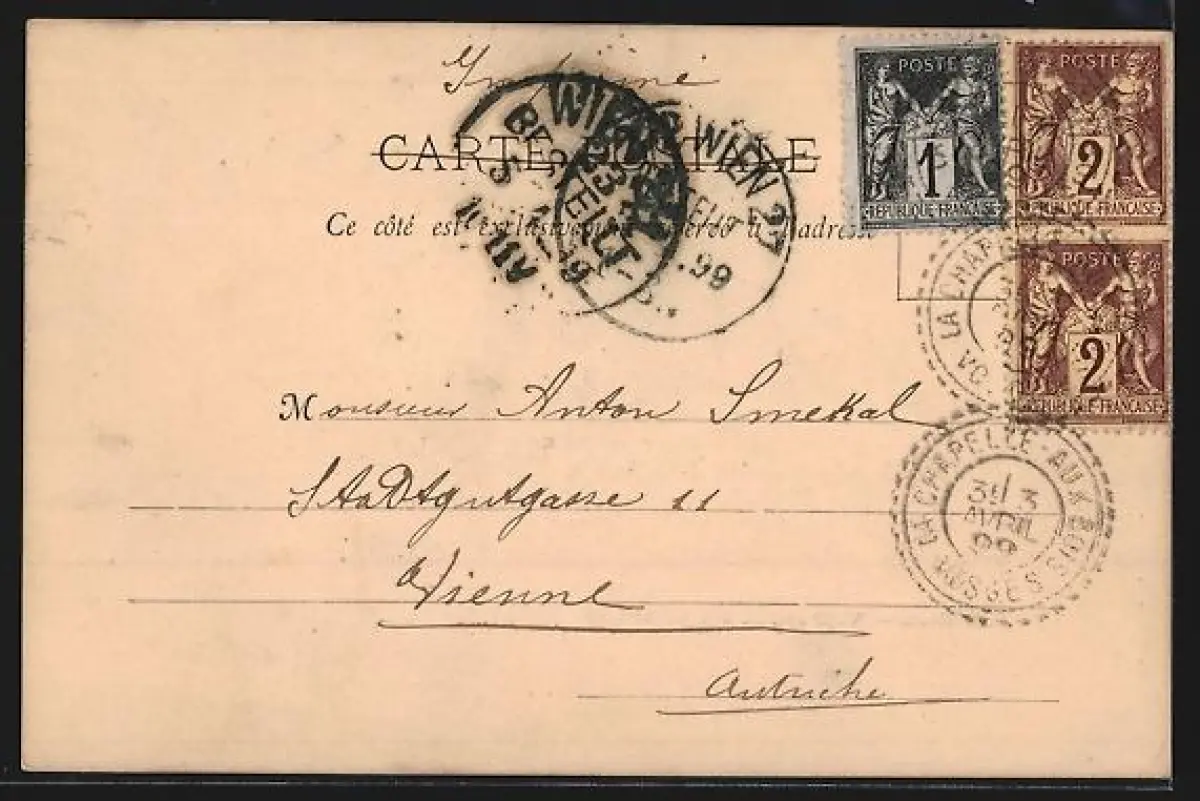 Imprimé
CARTE POSTALE
Ce côté est exclusivement réservé à l'adresse
POSTE
1
REPUBLIQUE FRANÇAISE
POSTE
2
REPUBLIQUE FRANÇAISE
POSTE
2
REPUBLIQUE FRANÇAISE
WIEN
BESTELLT
WIEN 2
99
LA CHAPELLE-AUX-BOIS
3
AVRIL
99
VOSGES
Monsieur Anton Smekal
Stadtgutgasse 11
Vienne
Autriche